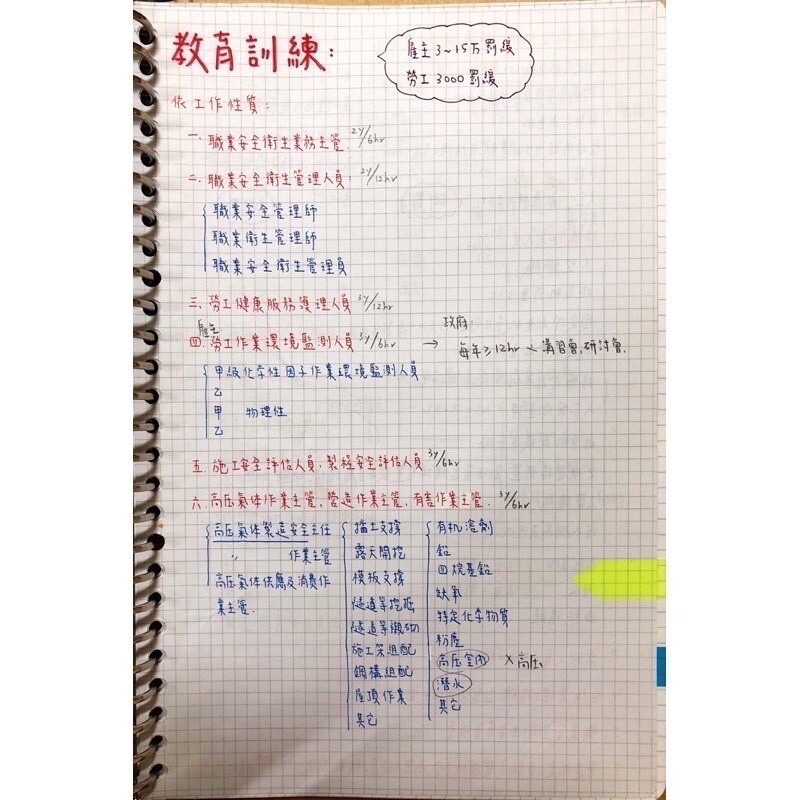 教育訓練:
雇主 3~15万罰鍰
勞工 3000 罰鍰
依工作性質:
一. 職業安全衛生業務主管. 2y/6hr
二. 職業安全衛生管理人員: 2y/12hr
職業安全管理師
職業衛生管理師
職業安全衛生管理員
三. 勞工健康服務護理人員 3y/12hr
雇主
四. 勞工作業環境監測人員 3y/6hr → 政府: 每年≥12hr 講習會、研討會.
甲級化学性因子作業環境監測人員
乙
甲 物理性
乙
五. 施工安全評估人員、製程安全評估人員 3y/6hr
六. 高压氣体作業主管、營造作業主管、有害作業主管. 3y/6hr
高压氣体製造安全主任
〃 作業主管
高压氣体供應及消費作
業主管.
擋土支撐
露天開挖
模板支撐
隧道等挖掘
隧道等襯砌
施工架組配
鋼構組配
屋頂作業
其它
有机溶劑
鉛
四烷基鉛
缺氧
特定化学物質
粉塵
高压室內 × 高压
潛水
其它